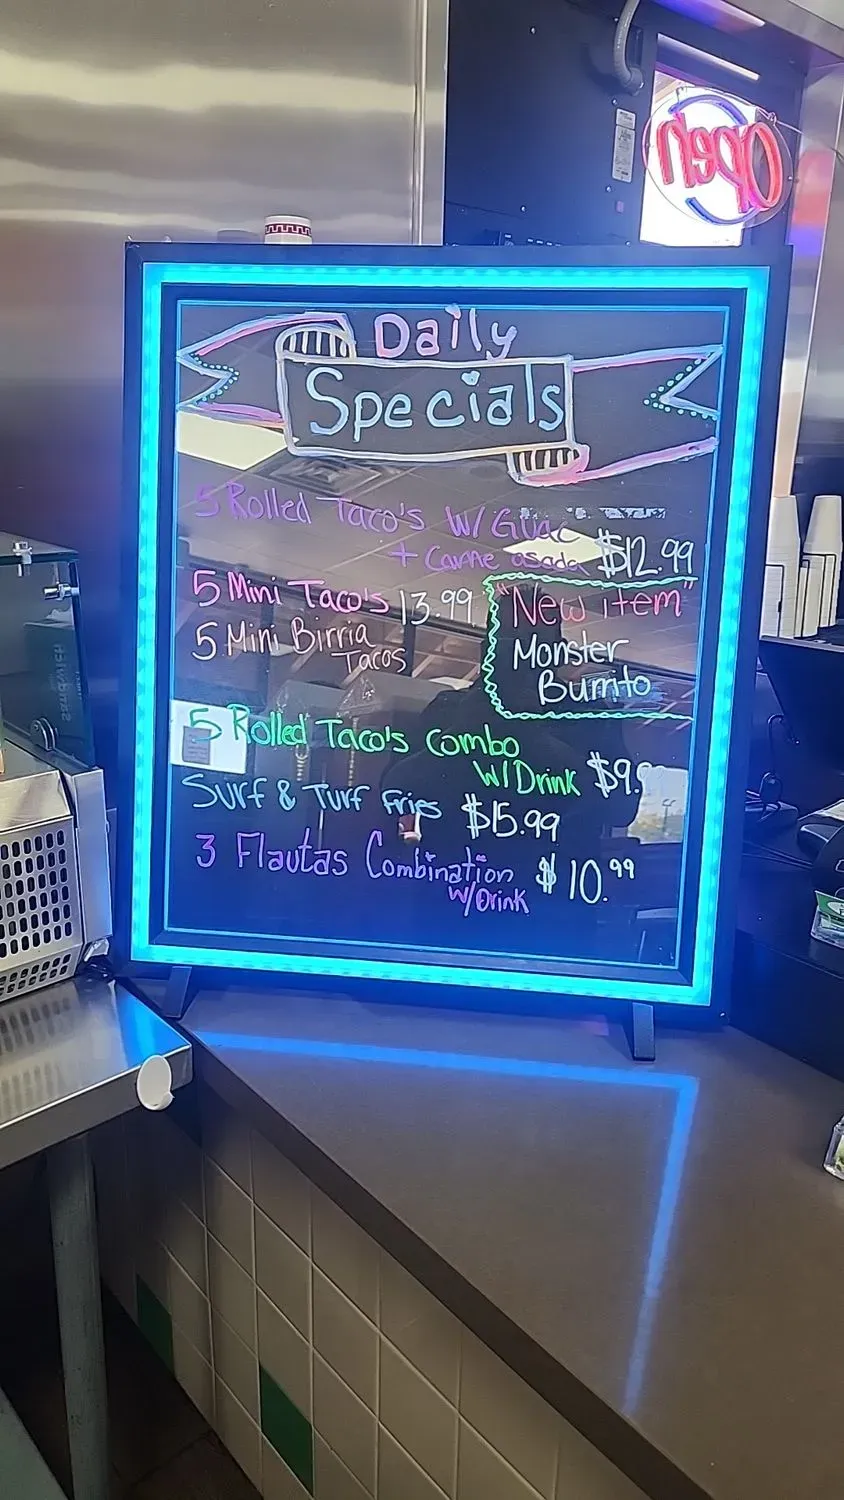 Open
Daily
Specials
5 Rolled Taco's W/ Guac
+ Carne asada $12.99
5 Mini Taco's 13.99
5 Mini Birria
Tacos
"New item"
Monster
Burrito
5 Rolled Taco's Combo
W/ Drink $9.
Surf & Turf Fries $15.99
3 Flautas Combination $10.99
W/Drink
Sandwich